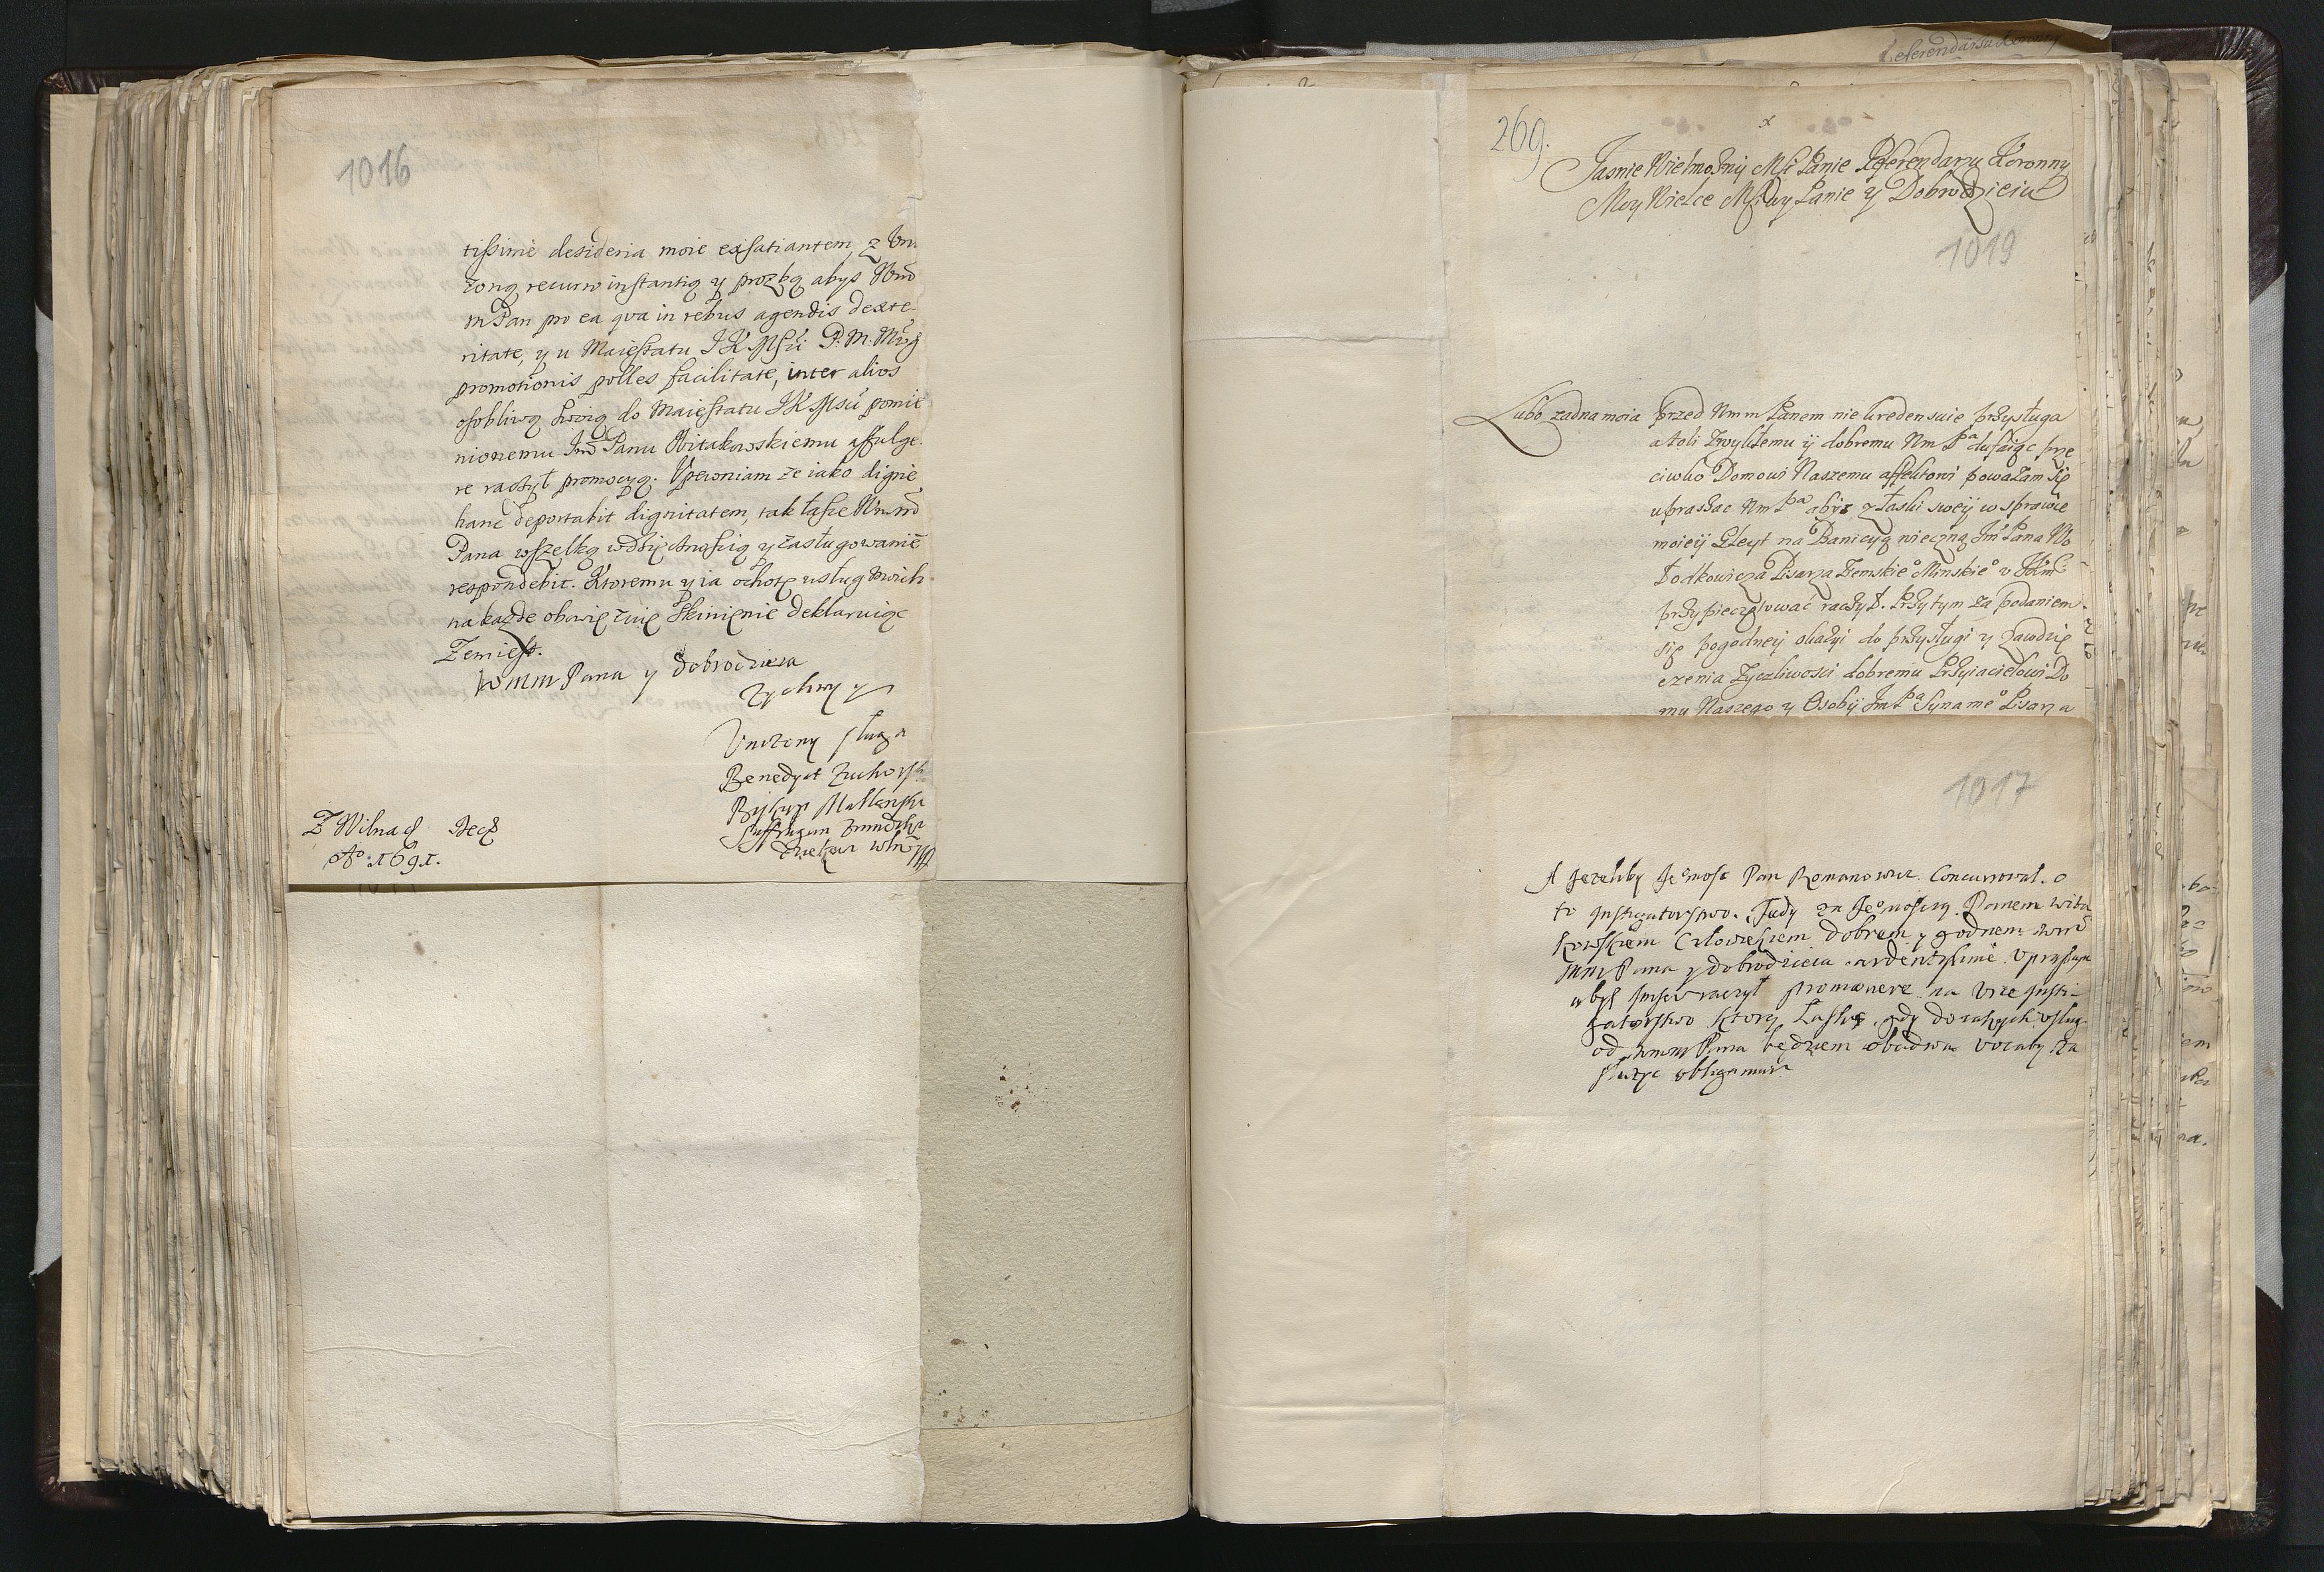 1016
tißimè desideria moie exsatiantem, z Vni
żoną recurro instantią y proźbą abyś Wmō
mPan pro ea qva in rebus agendis dexte-
ritate, y u Maiestatu JKMści P. M. Mwg
promotionis polles facilitate, inter alios
osobliwą swoią do Maiestatu JKMśći pomie
nionemu Jmō Panu Witakowskiemu affulge-
re raczył promocyą. Vpewniam że iako dignè
hanc deportabit dignitatem, tak łasce Wmmō
Pana wszelką wdźięcznośćią y zasługowaniē
respondebit. Ktoremu y ia ochotę usług swoich
na każde obowięzuię skinięnie deklaruiąc
Żemiest.
Wmm Pana y dobrodzieia
Życzliwy y
Vniżony sługa
Benedykt Zuchorski
Biskup Mallenski
Suffragan Zmudzki
Dziekan Wln
Z Wilna d Dec
Aº 1691.
Referendarzu Koronny
269.
x
Jasnie Wielmożnÿ Mśi Panie Referendarzu Koronny
Moy Wielce Mśiwy Panie y Dobrodzieiu
1019
Lubo zadna moia przed Wmm Panem nie kredensuie przysługa
atoli zwykłemu ÿ dobremu Wm Pª dufaiąc prze
ciwko Domowi Naszemu affektowi poważam się
upraszac Wm Pª abÿs z łaski sweÿ w sprawie
moieÿ Gleyt na Banicyą wieczną Jm Pana Wo
łodkowicza Pisarza Zemskiº Minskiº v JKm
przypieczętowáć raczÿł. Przytym za podaniem
się pogodneÿ okazÿi do przysługi y zawdzię
czenia życzliwosci dobremu Przyiacielowi Do
mu Naszego y Osobÿ Jm Pª Syna mº Pisarza
1017
A Jezeliby Jeºmosc Pan Romanowicz Concurrował o
to Instigatorstwo. Tedy za Jeºmoscią Panem Wita
kowskiem Człowiekiem dobrem y godnem wmō
mm Pana y dobrodzieia ardentissime Vpraszam
abyś raczył promovere na Vice Insti-
gatorstwo ktorą Łaskę, gdy doznych usług
od wmm Pana będziem obadwa vocaty za
służyc obligamur